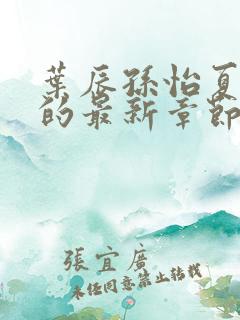 葉辰孫怡夏
的最新章節
張宜廣
未經同意禁止轉載